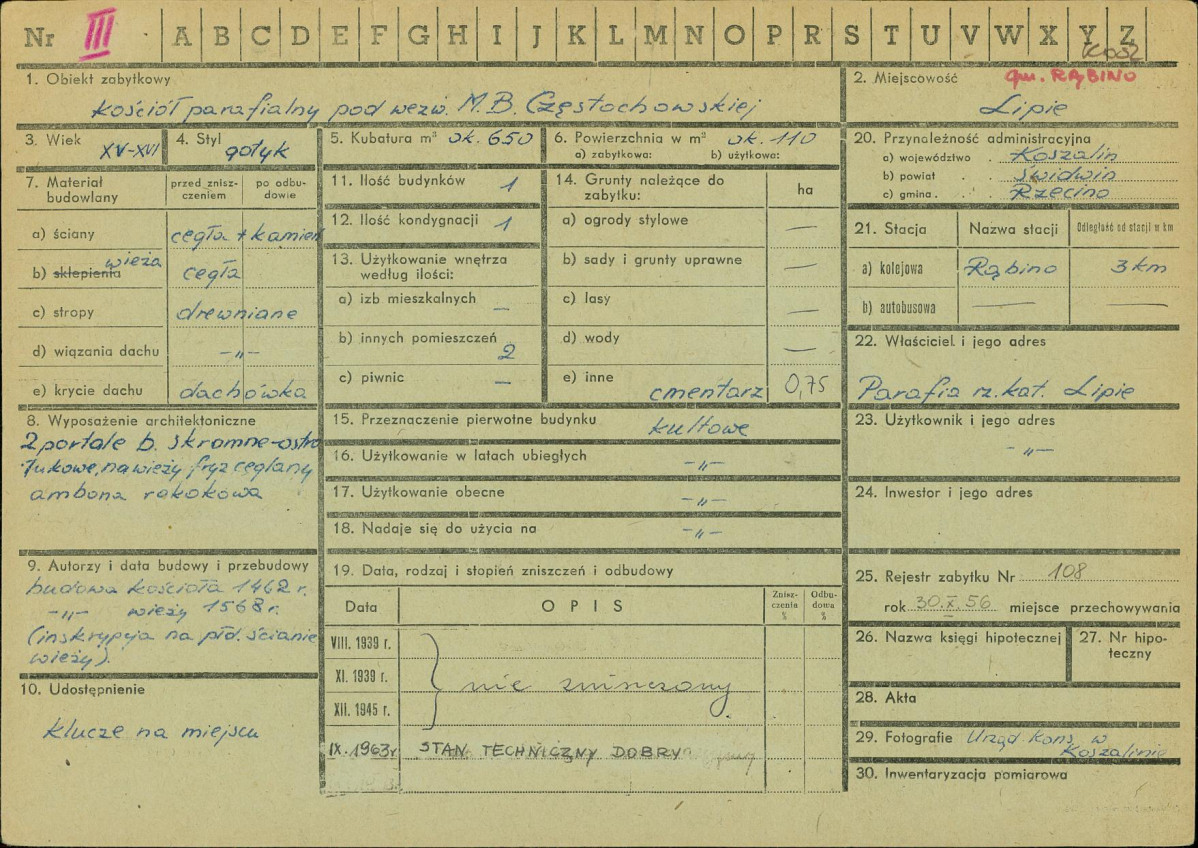 Nr III A B C D E F G H I J K L M N O P R S T U V W X Y Z
1. Obiekt zabytkowy
kościół parafialny pod wezw. M.B. Częstochowskiej
2. Miejscowość gm. RĄBINO
Lipie
3. Wiek XV-XVI
4. Styl gotyk
5. Kubatura m³ ok. 650
6. Powierzchnia w m² ok. 110
a) zabytkowa: b) użytkowa:
20. Przynależność administracyjna
a) województwo . Koszalin
b) powiat . . Świdwin
c) gmina . . Rzecino
7. Materiał budowlany
przed znisz-
czeniem
po odbu-
dowie
a) ściany cegła + kamień
b) sklepienia wieża cegła
c) stropy drewniane
d) wiązania dachu -„-
e) krycie dachu dachówka
11. Ilość budynków 1
12. Ilość kondygnacji 1
13. Użytkowanie wnętrza
według ilości:
a) izb mieszkalnych —
b) innych pomieszczeń 2
c) piwnic —
14. Grunty należące do
zabytku:
ha
a) ogrody stylowe —
b) sady i grunty uprawne —
c) lasy —
d) wody —
e) inne cmentarz 0,75
21. Stacja Nazwa stacji Odległość od stacji w km
a) kolejowa Rąbino 3 km
b) autobusowa — —
22. Właściciel i jego adres
Parafia rz. kat. Lipie
8. Wyposażenie architektoniczne
2 portale b. skromne-ostro
łukowe, na wieży fryz ceglany
ambona rokokowa
15. Przeznaczenie pierwotne budynku kultowe
16. Użytkowanie w latach ubiegłych -„-
17. Użytkowanie obecne -„-
18. Nadaje się do użycia na -„-
23. Użytkownik i jego adres
-„-
24. Inwestor i jego adres
9. Autorzy i data budowy i przebudowy
budowa kościoła 1462 r.
-„- wieży 1568 r.
(inskrypcja na płd. ścianie
wieży).
10. Udostępnienie
klucze na miejscu
19. Data, rodzaj i stopień zniszczeń i odbudowy
Data OPIS
Znisz-
czenia
%
Odbu-
dowa
%
VIII. 1939 r.
XI. 1939 r. nie zniszczony
XII. 1945 r.
IX. 1963 r STAN TECHNICZNY DOBRY
25. Rejestr zabytku Nr 108
rok 30.X.56 miejsce przechowywania
26. Nazwa księgi hipotecznej
27. Nr hipo-
teczny
28. Akta
29. Fotografie Urząd Kons. w
Koszalinie
30. Inwentaryzacja pomiarowa